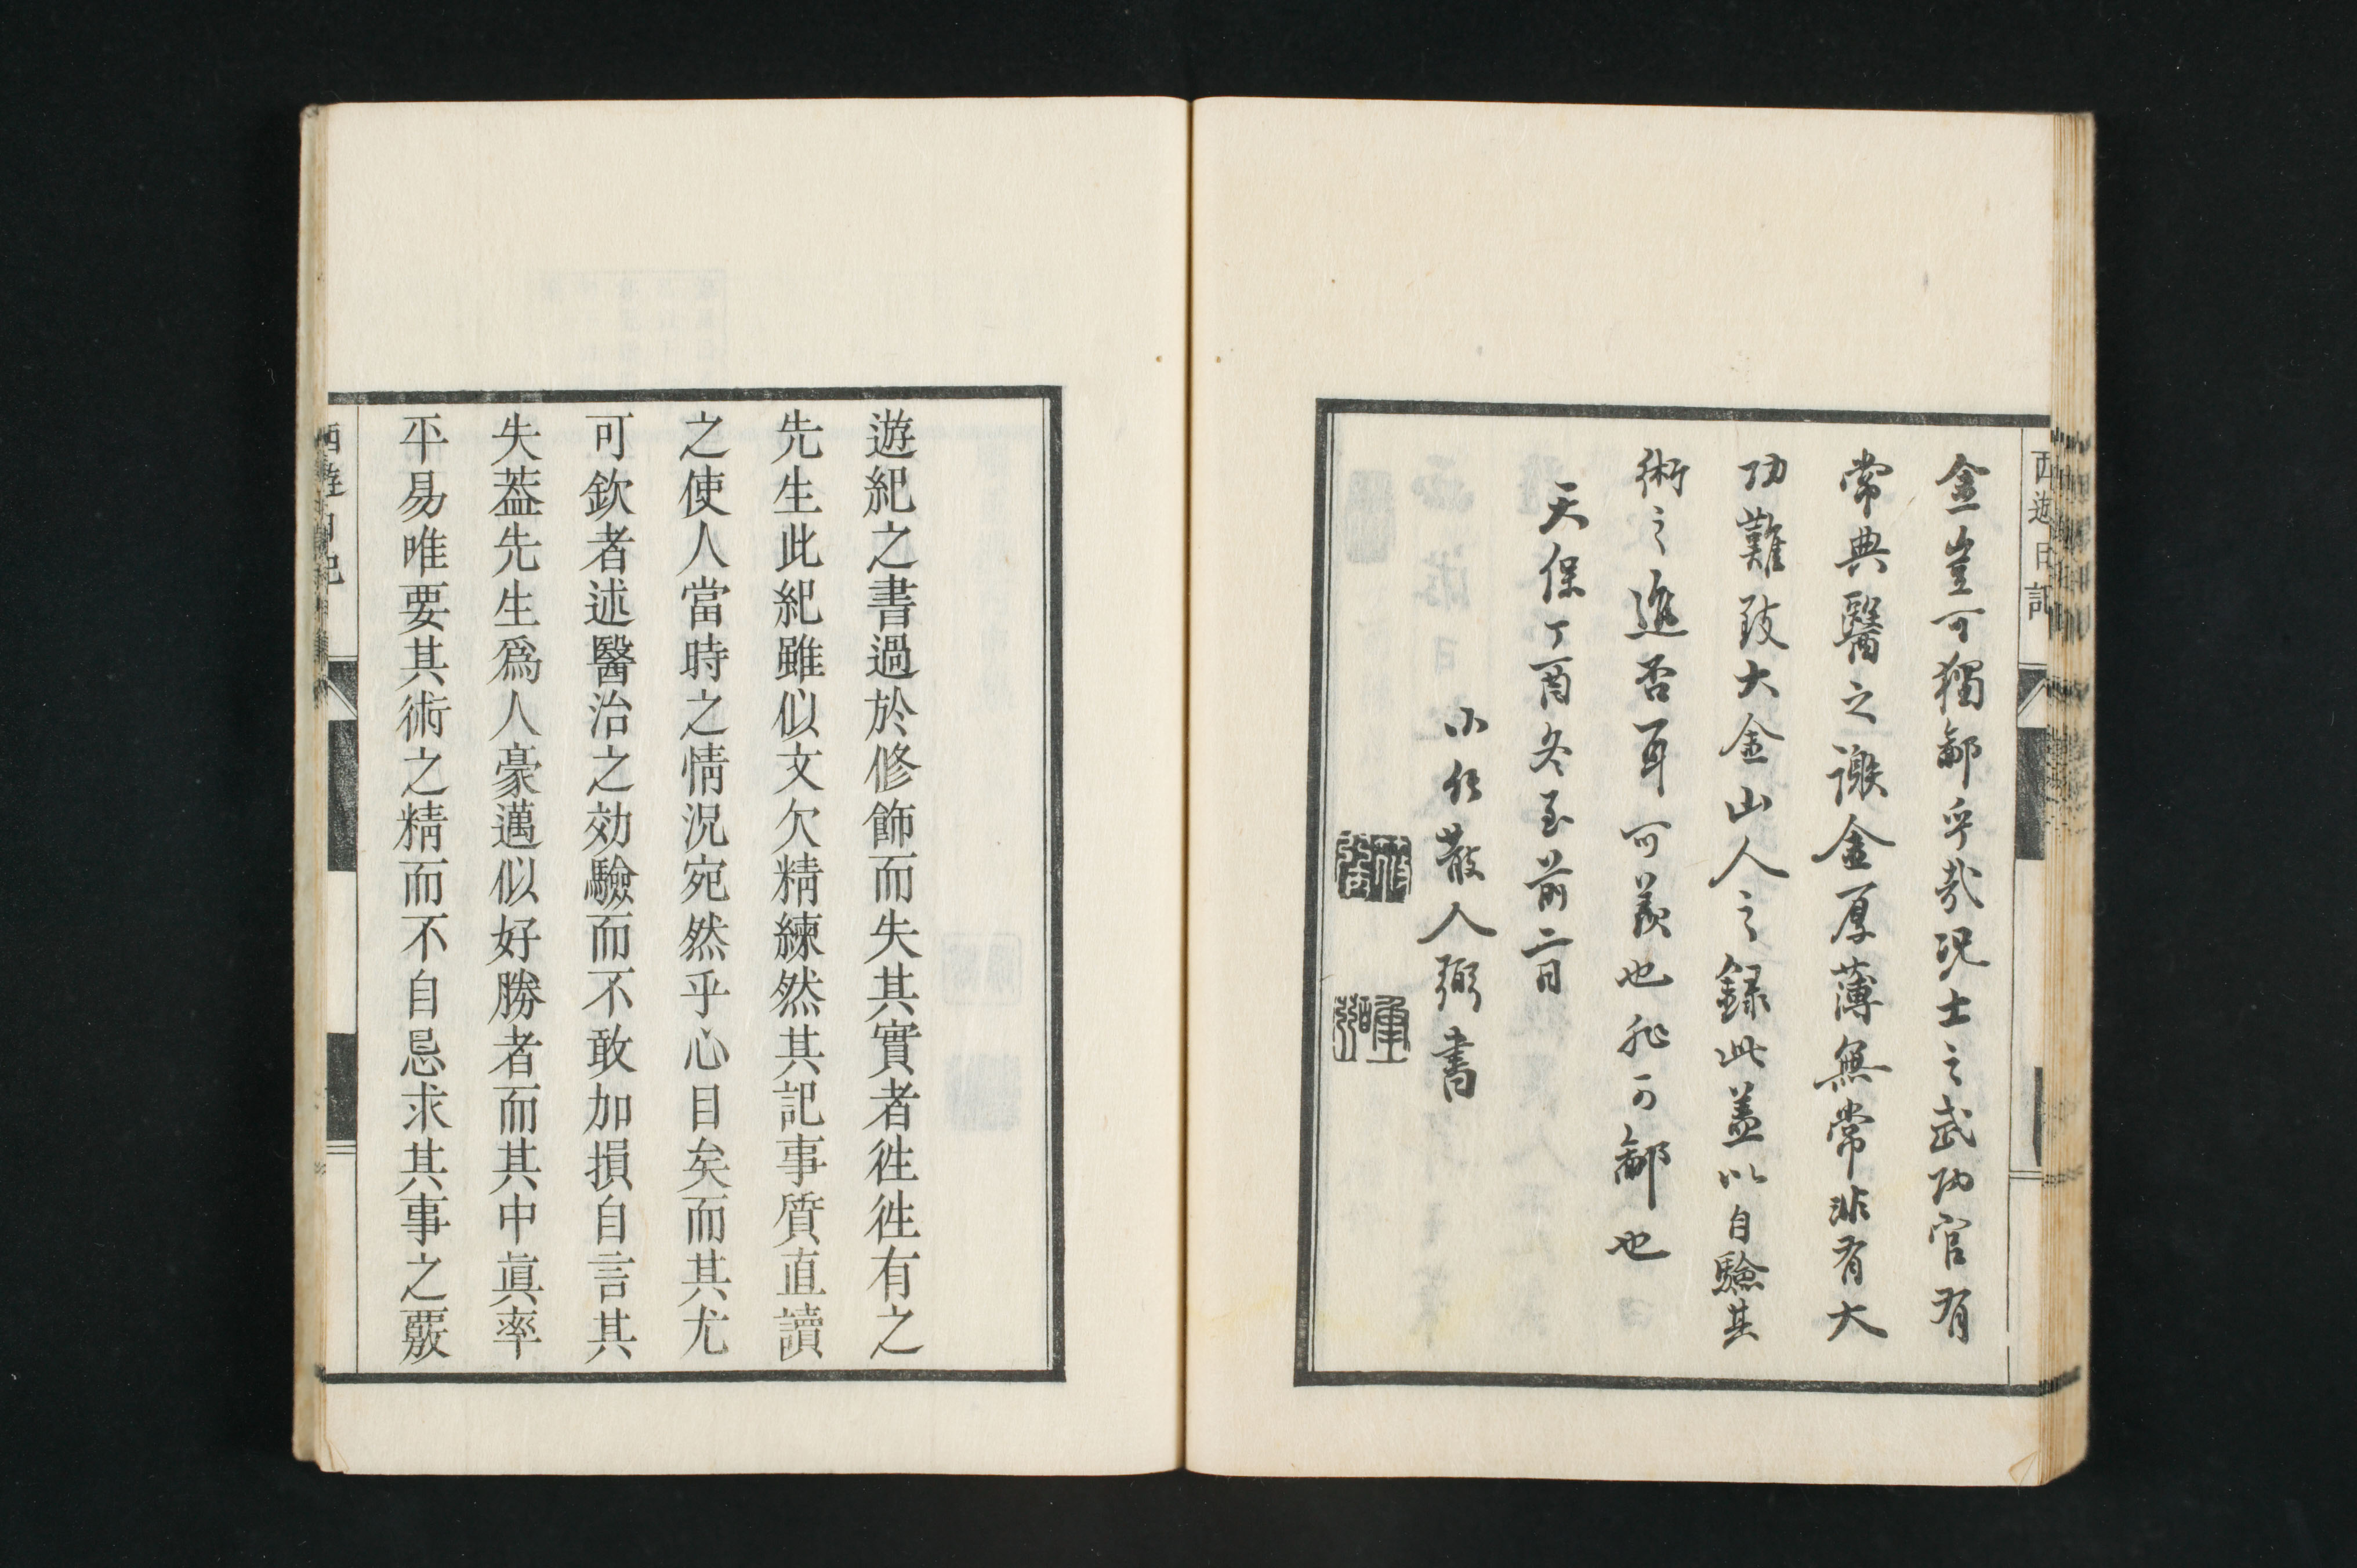 西遊日記
金豈可獨鄙乎哉況士之武功官有
常典醫之謝金厚薄無常非有大
功難致大金山人之錄此蓋以自驗其
術之進否耳可羨也非可鄙也
天保丁酉冬至前二日
小仙散人弼書
遊紀之書過於修飾而失其實者徃徃有之
先生此紀雖似文欠精練然其記事質直讀
之使人當時之情況宛然乎心目矣而其尤
可欽者述醫治之効驗而不敢加損自言其
失葢先生爲人豪邁似好勝者而其中眞率
平易唯要其術之精而不自忌求其事之覈
西遊日記